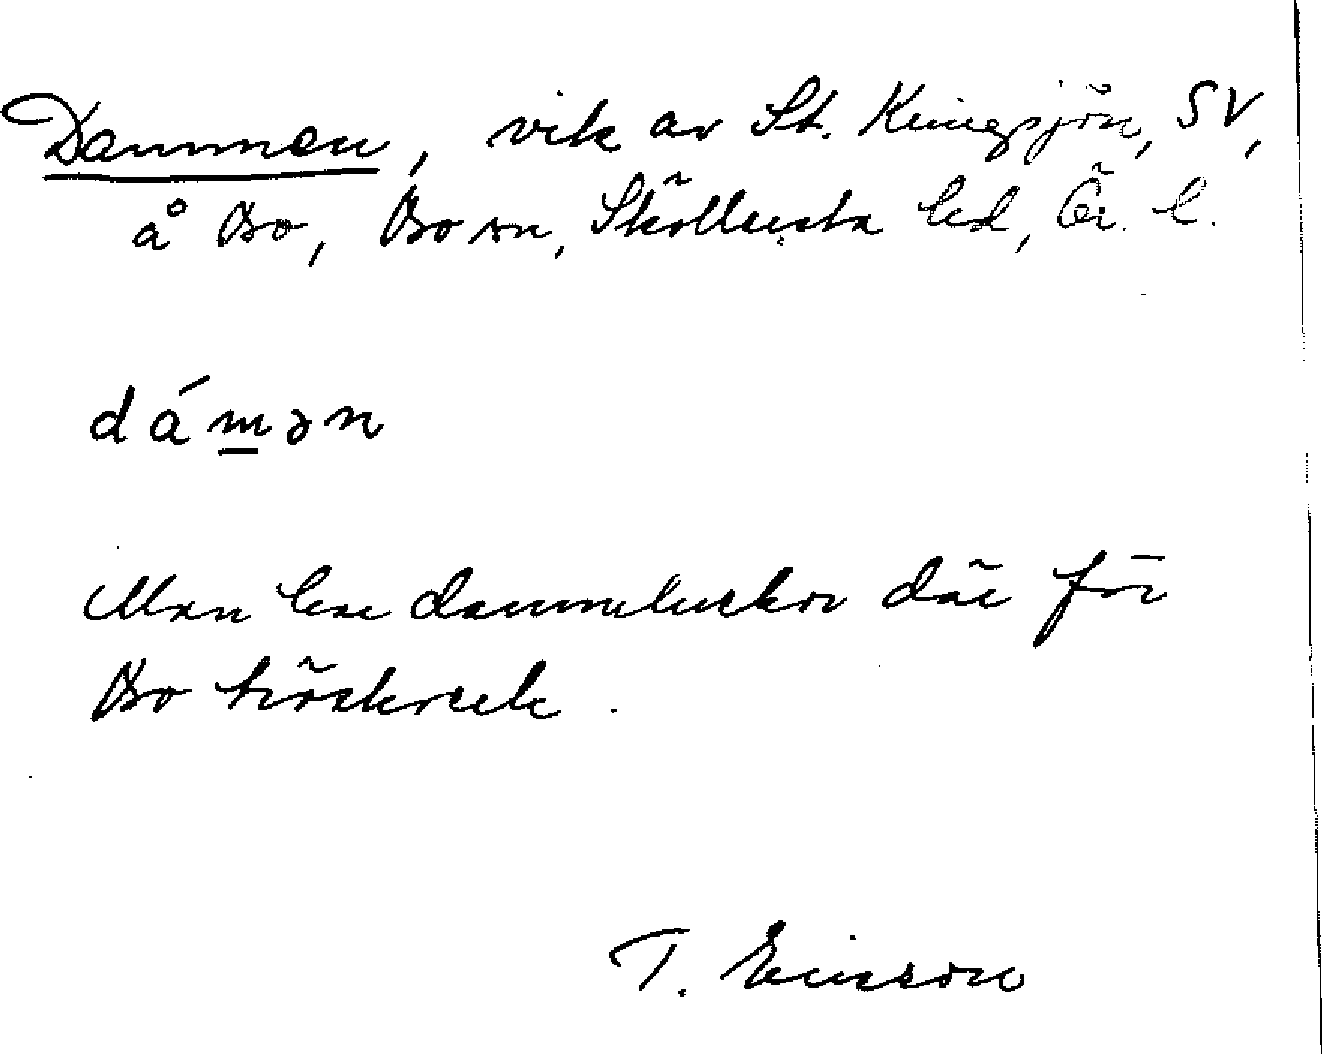 Dammen, vik av St. Kungsjön, SV,
å Bo, Bo sn, Sköllersta hd, Ör. l.
dámən
Man har dammluckor där för
Bo träskvarn.
T. Ericson